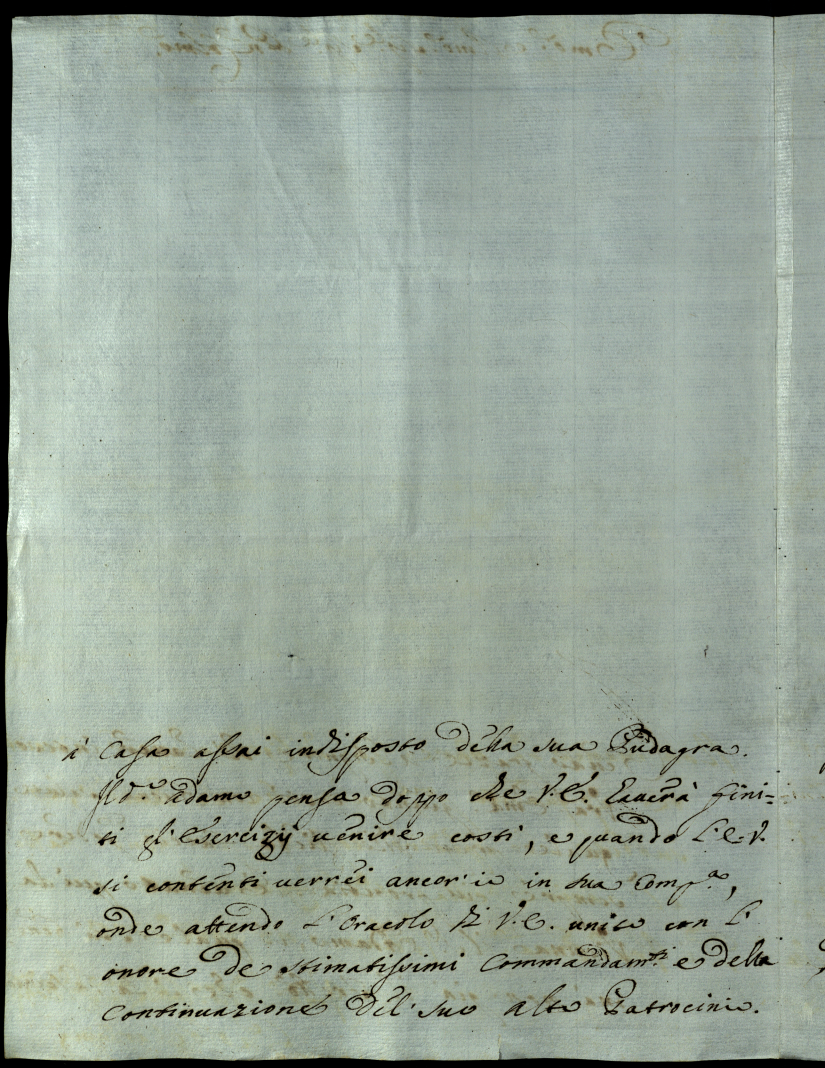 à Casa assai indisposto della sua Pudagra.
Il d.º adamo pensa doppo che V.E. haverà fini=
ti gl'esercizij uenire costì, e quando L'E.V.
si contenti uerrei ancor'io in sua Comp.ª,
onde attendo l'Oracolo di V.E. unito con l'
onore de stimatissimi Commandam.ti e della
Continuazione del suo alto Patrocinio.